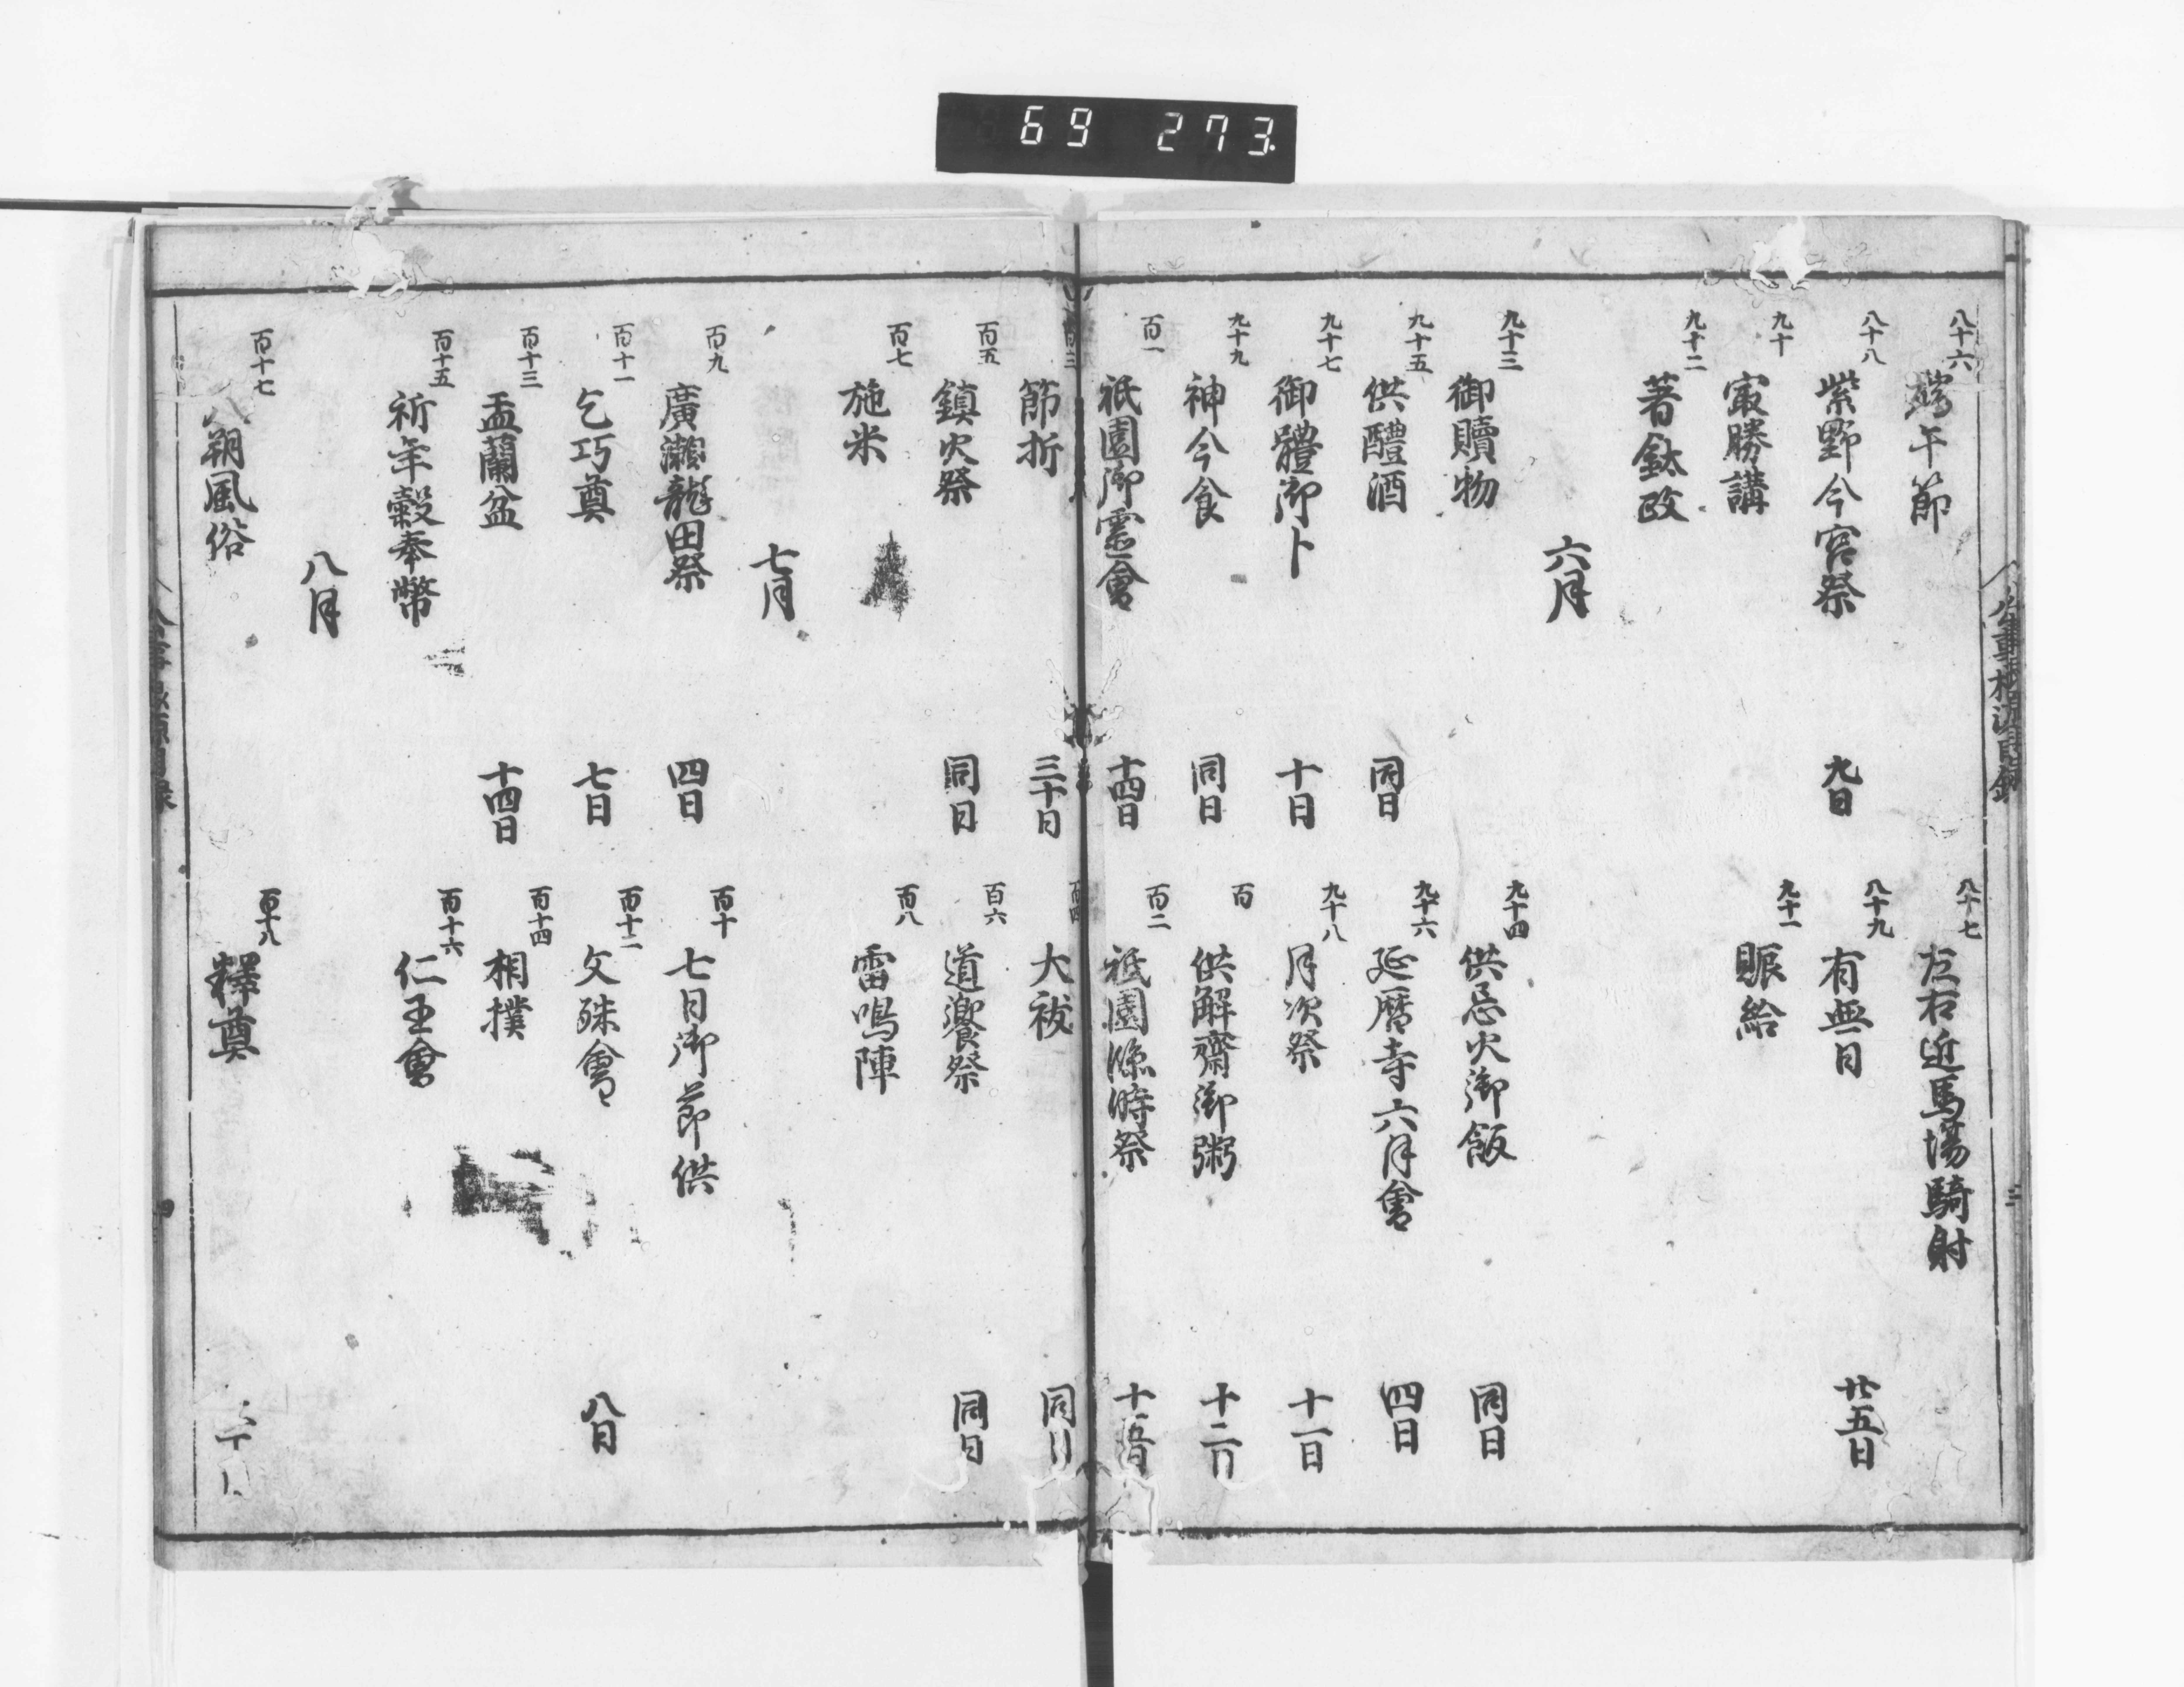 69 273
公事根源目録
八十六 端午節
八十七 左右近馬場騎射
八十八 紫野今宮祭 九日
八十九 有無日 廿五日
九十 㝡勝講
九十一 賑給
九十二 著鈦政
六月
九十三 御贖物
九十四 供忌火御飯 同日
九十五 供醴酒 同日
九十六 延暦寺六月會 四日
九十七 御體御卜 十日
九十八 月次祭 十一日
九十九 神今食 同日
百 供解齋御粥 十二日
百一 祇園御霊會 十四日
百二 祇園臨時祭 十五日
百三 節折 三十日
百四 大祓 同日
百五 鎮火祭 同日
百六 道饗祭 同日
百七 施米
百八 雷鳴陣
七月
百九 廣瀬龍田祭 四日
百十 七日御節供
百十一 乞巧奠 七日
百十二 文殊會 八日
百十三 盂蘭盆 十四日
百十四 相撲
百十五 祈年穀奉幣
百十六 仁王會
八月
百十七 八朔風俗
百十八 釋奠
公事根源目録
四